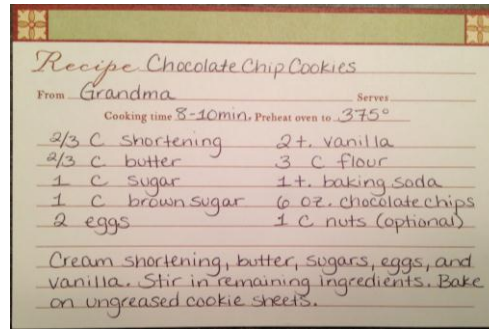 Recipe Chocolate Chip Cookies
From Grandma Serves
Cooking time 8-10min. Preheat oven to 375°
2/3 C shortening 2 t. vanilla
2/3 C butter 3 C flour
1 C sugar 1 t. baking soda
1 C brown sugar 6 oz. chocolate chips
2 eggs 1 C nuts (optional)
Cream shortening, butter, sugars, eggs, and
vanilla. Stir in remaining ingredients. Bake
on ungreased cookie sheets.